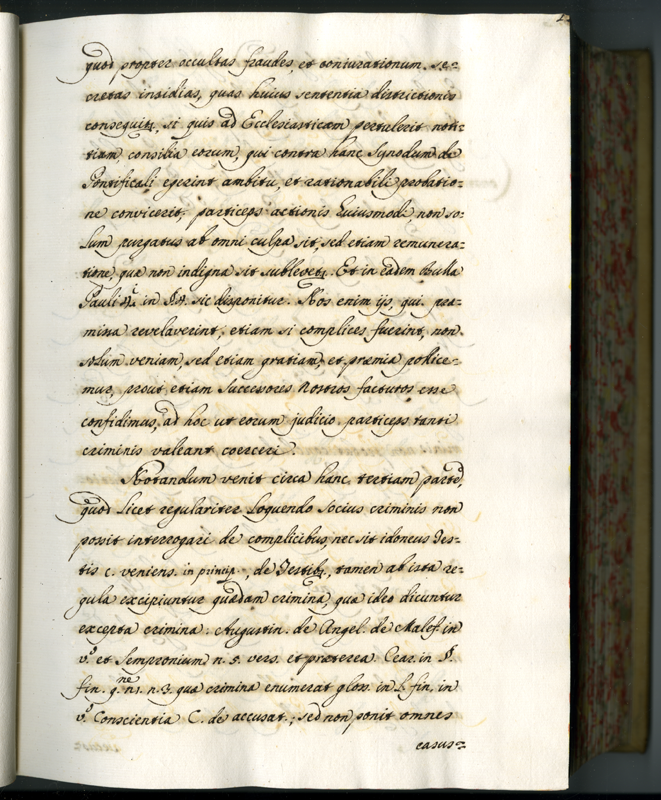 quod propter occultas fraudes, et coniurationum se=
cretas insidias, quas huius sententia districtionis
consequitr, si quis ad Ecclesiasticam pertulerit noti=
tiam, consilia eorum, qui contra hanc Synodum de
Pontificali egerint ambitu, et rationabili probatio=
ne convicerit, particeps actionis huiusmodi, non so=
lum purgatus ab omni culpa sit, sed etiam remunera=
tione, quæ non indigna sit sublevetr. Et in eadem Bulla
Pauli in §. sic disponitur. Nos enim ijs, qui præ=
missa revelaverint, etiam si complices fuerint, non
solum veniam, sed etiam gratiam, et præmia pollice=
mur, prout etiam Successores Nostros facturos esse
confidimus, ad hoc ut eorum judicio particeps tanti
criminis valeant coerceri.
Notandum venit circa hanc tertiam parte,
quod licet regulariter loquendo socius criminis non
possit interrogari de complicibus, nec sit idoneus Tes=
tis c. veniens. in princip., de Testib., tamen ab ista re=
gula excipiuntur quædam crimina, quæ ideo dicuntur
excepta crimina. Augustin. de Angel. de Malef. in
vo. et Sempronium n. 5. vers. et præterea. Clar. in §.
fin. q.ne 1. n. 3. quæ crimina enumerat gloss. in l. fin. in
vo. Conscientia C. de accusat.; sed non ponit omnes
casus=